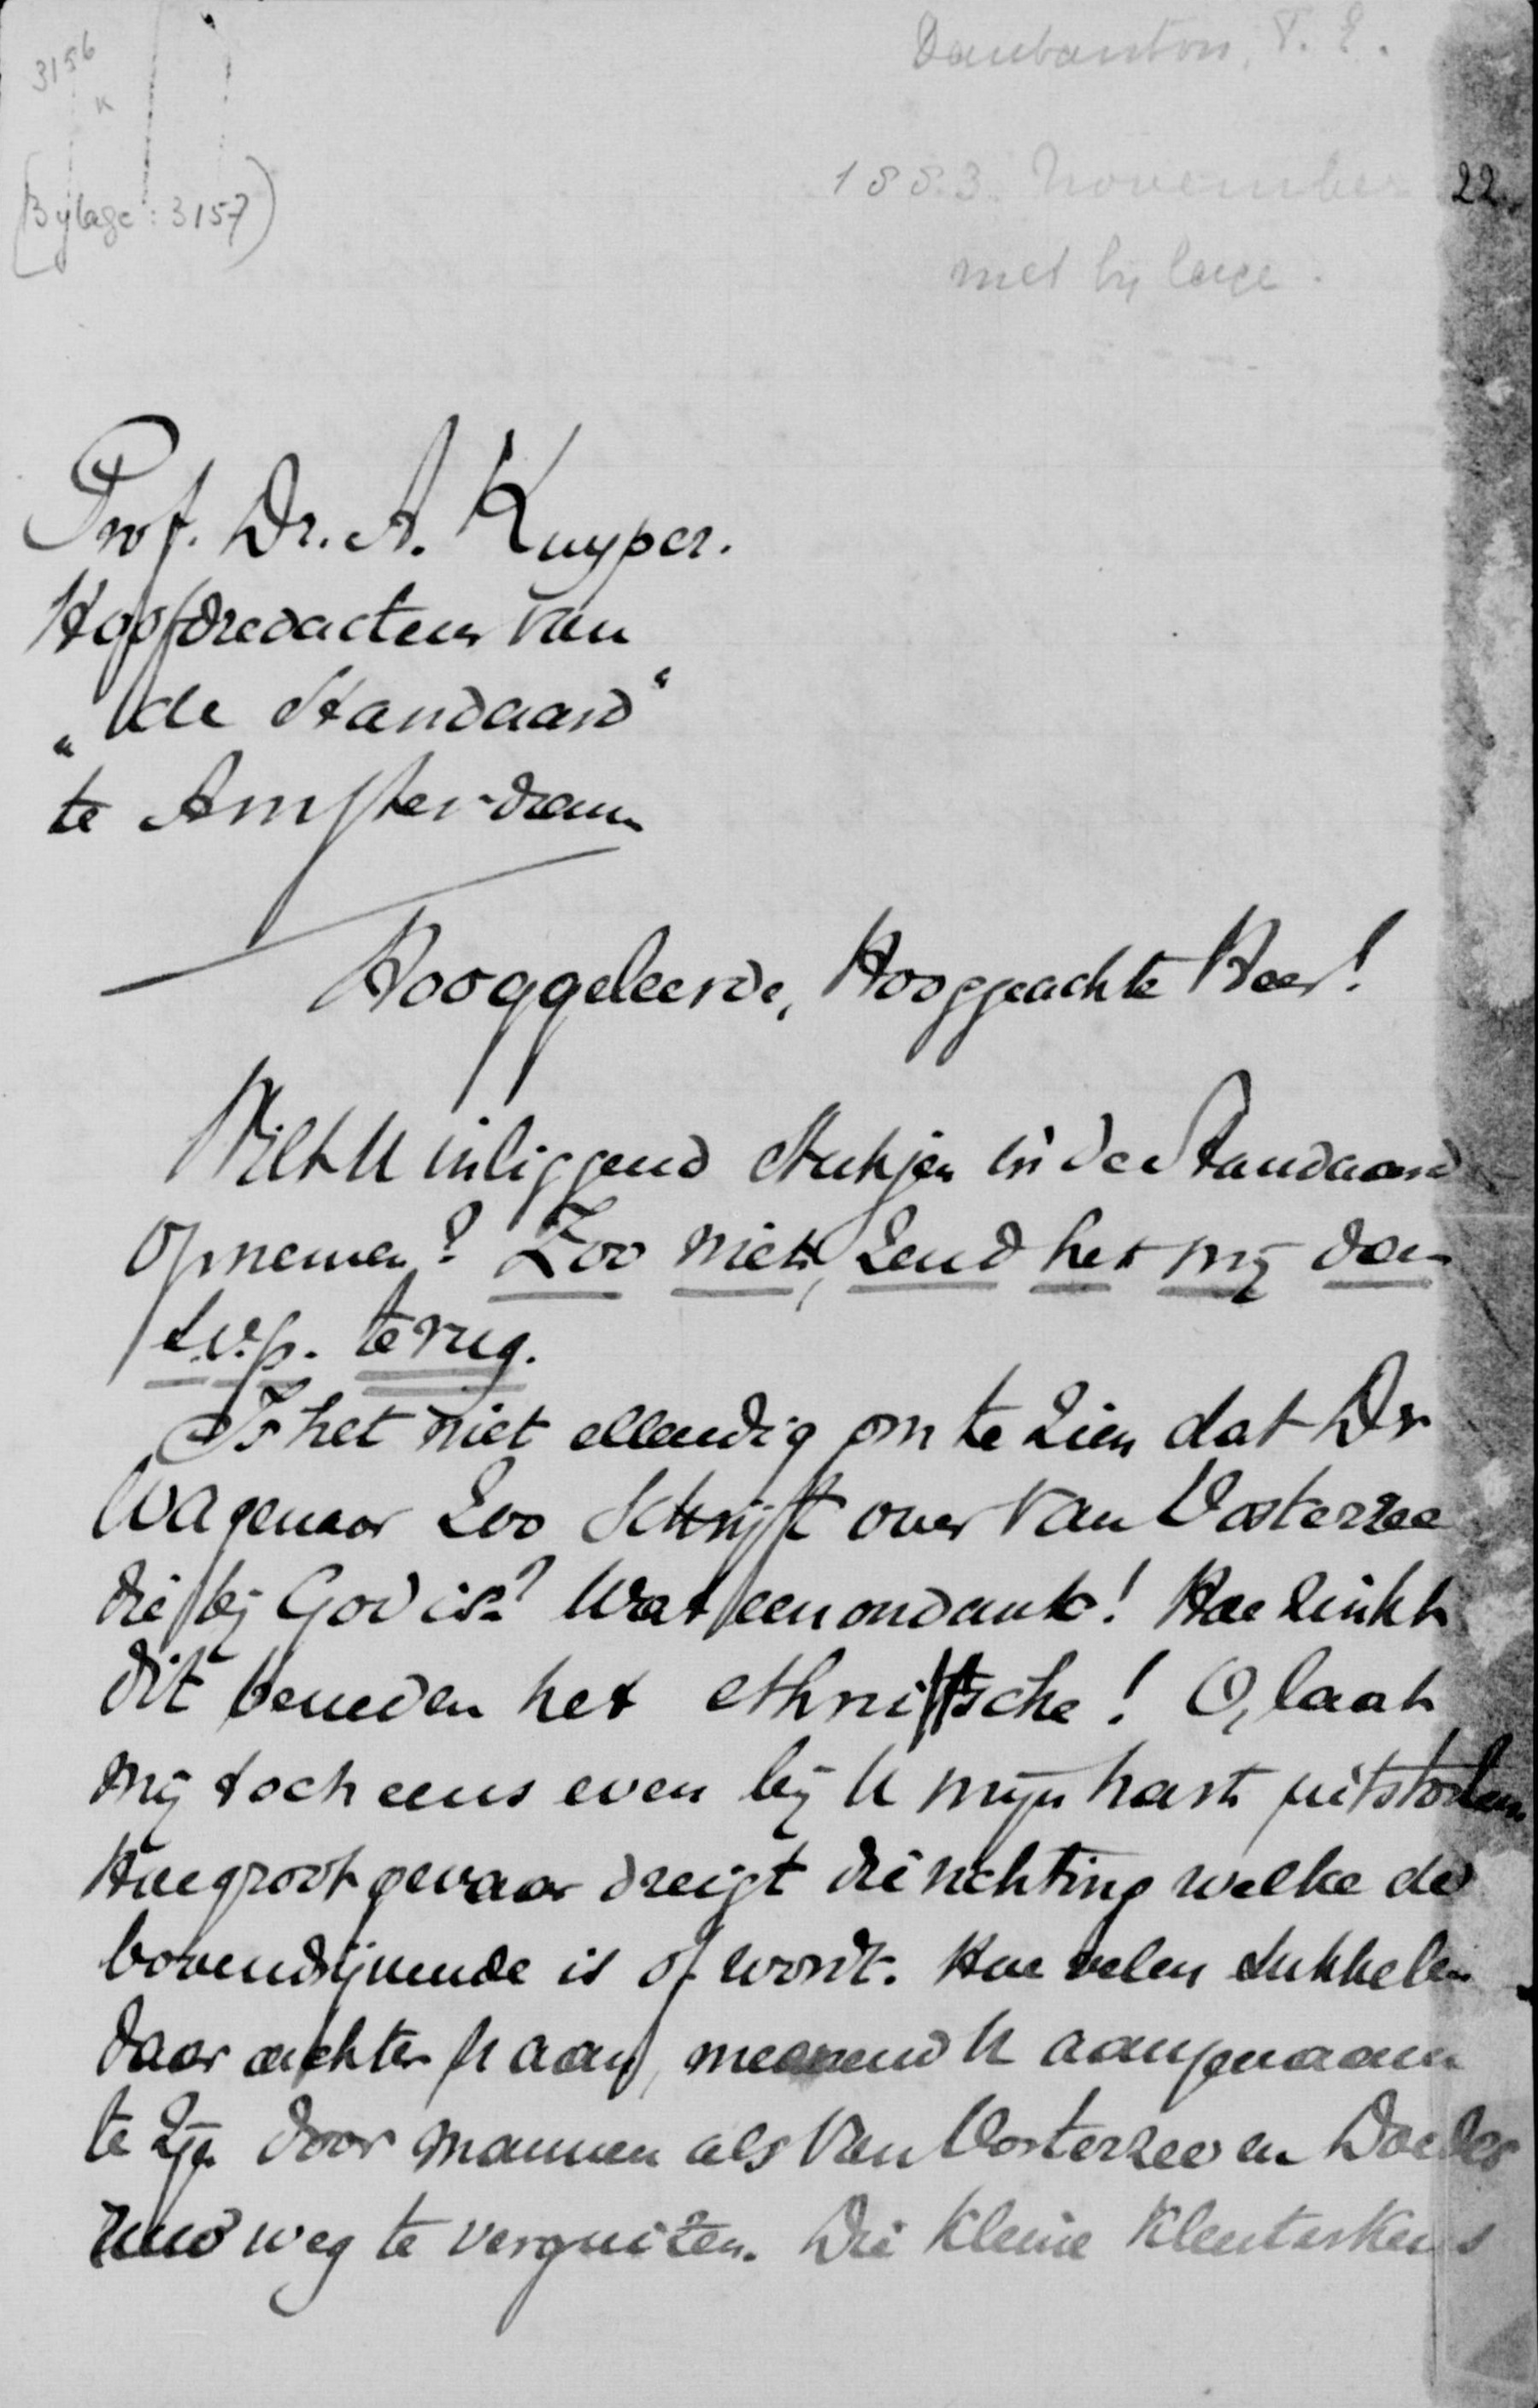 3156
K
(Bylage: 3157)
Daubanton, F. E.
1883. November 22.
met bylage.
Prof. Dr. A. Kuyper.
Hoofdredacteur van
„de Standaard“
te Amsterdam
Hooggeleerde, Hooggeachte Heer!
Wilt U inliggend stukjen in de Standaard
opnemen? Zoo niet, zend het mij dan
s.v.p. terug.
Is het niet ellendig om te zien dat Dr
Wagenaar zoo schrijft over Van Oosterzee
die bij God is? Wat een ondank! Hoe zinkt
dit beneden het ethnische! O, laat
mij toch eens even bij U mijn hart uitstorten.
Hoe groot gevaar dreigt die richting welke de
bovendrijvende is of wordt. Hoe velen sukkelen
daar achter U aan, meenend U aangenaam
te zijn door mannen als Van Oosterzee en Doedes
ruw weg te verguizen. Die kleine Kleuterkens